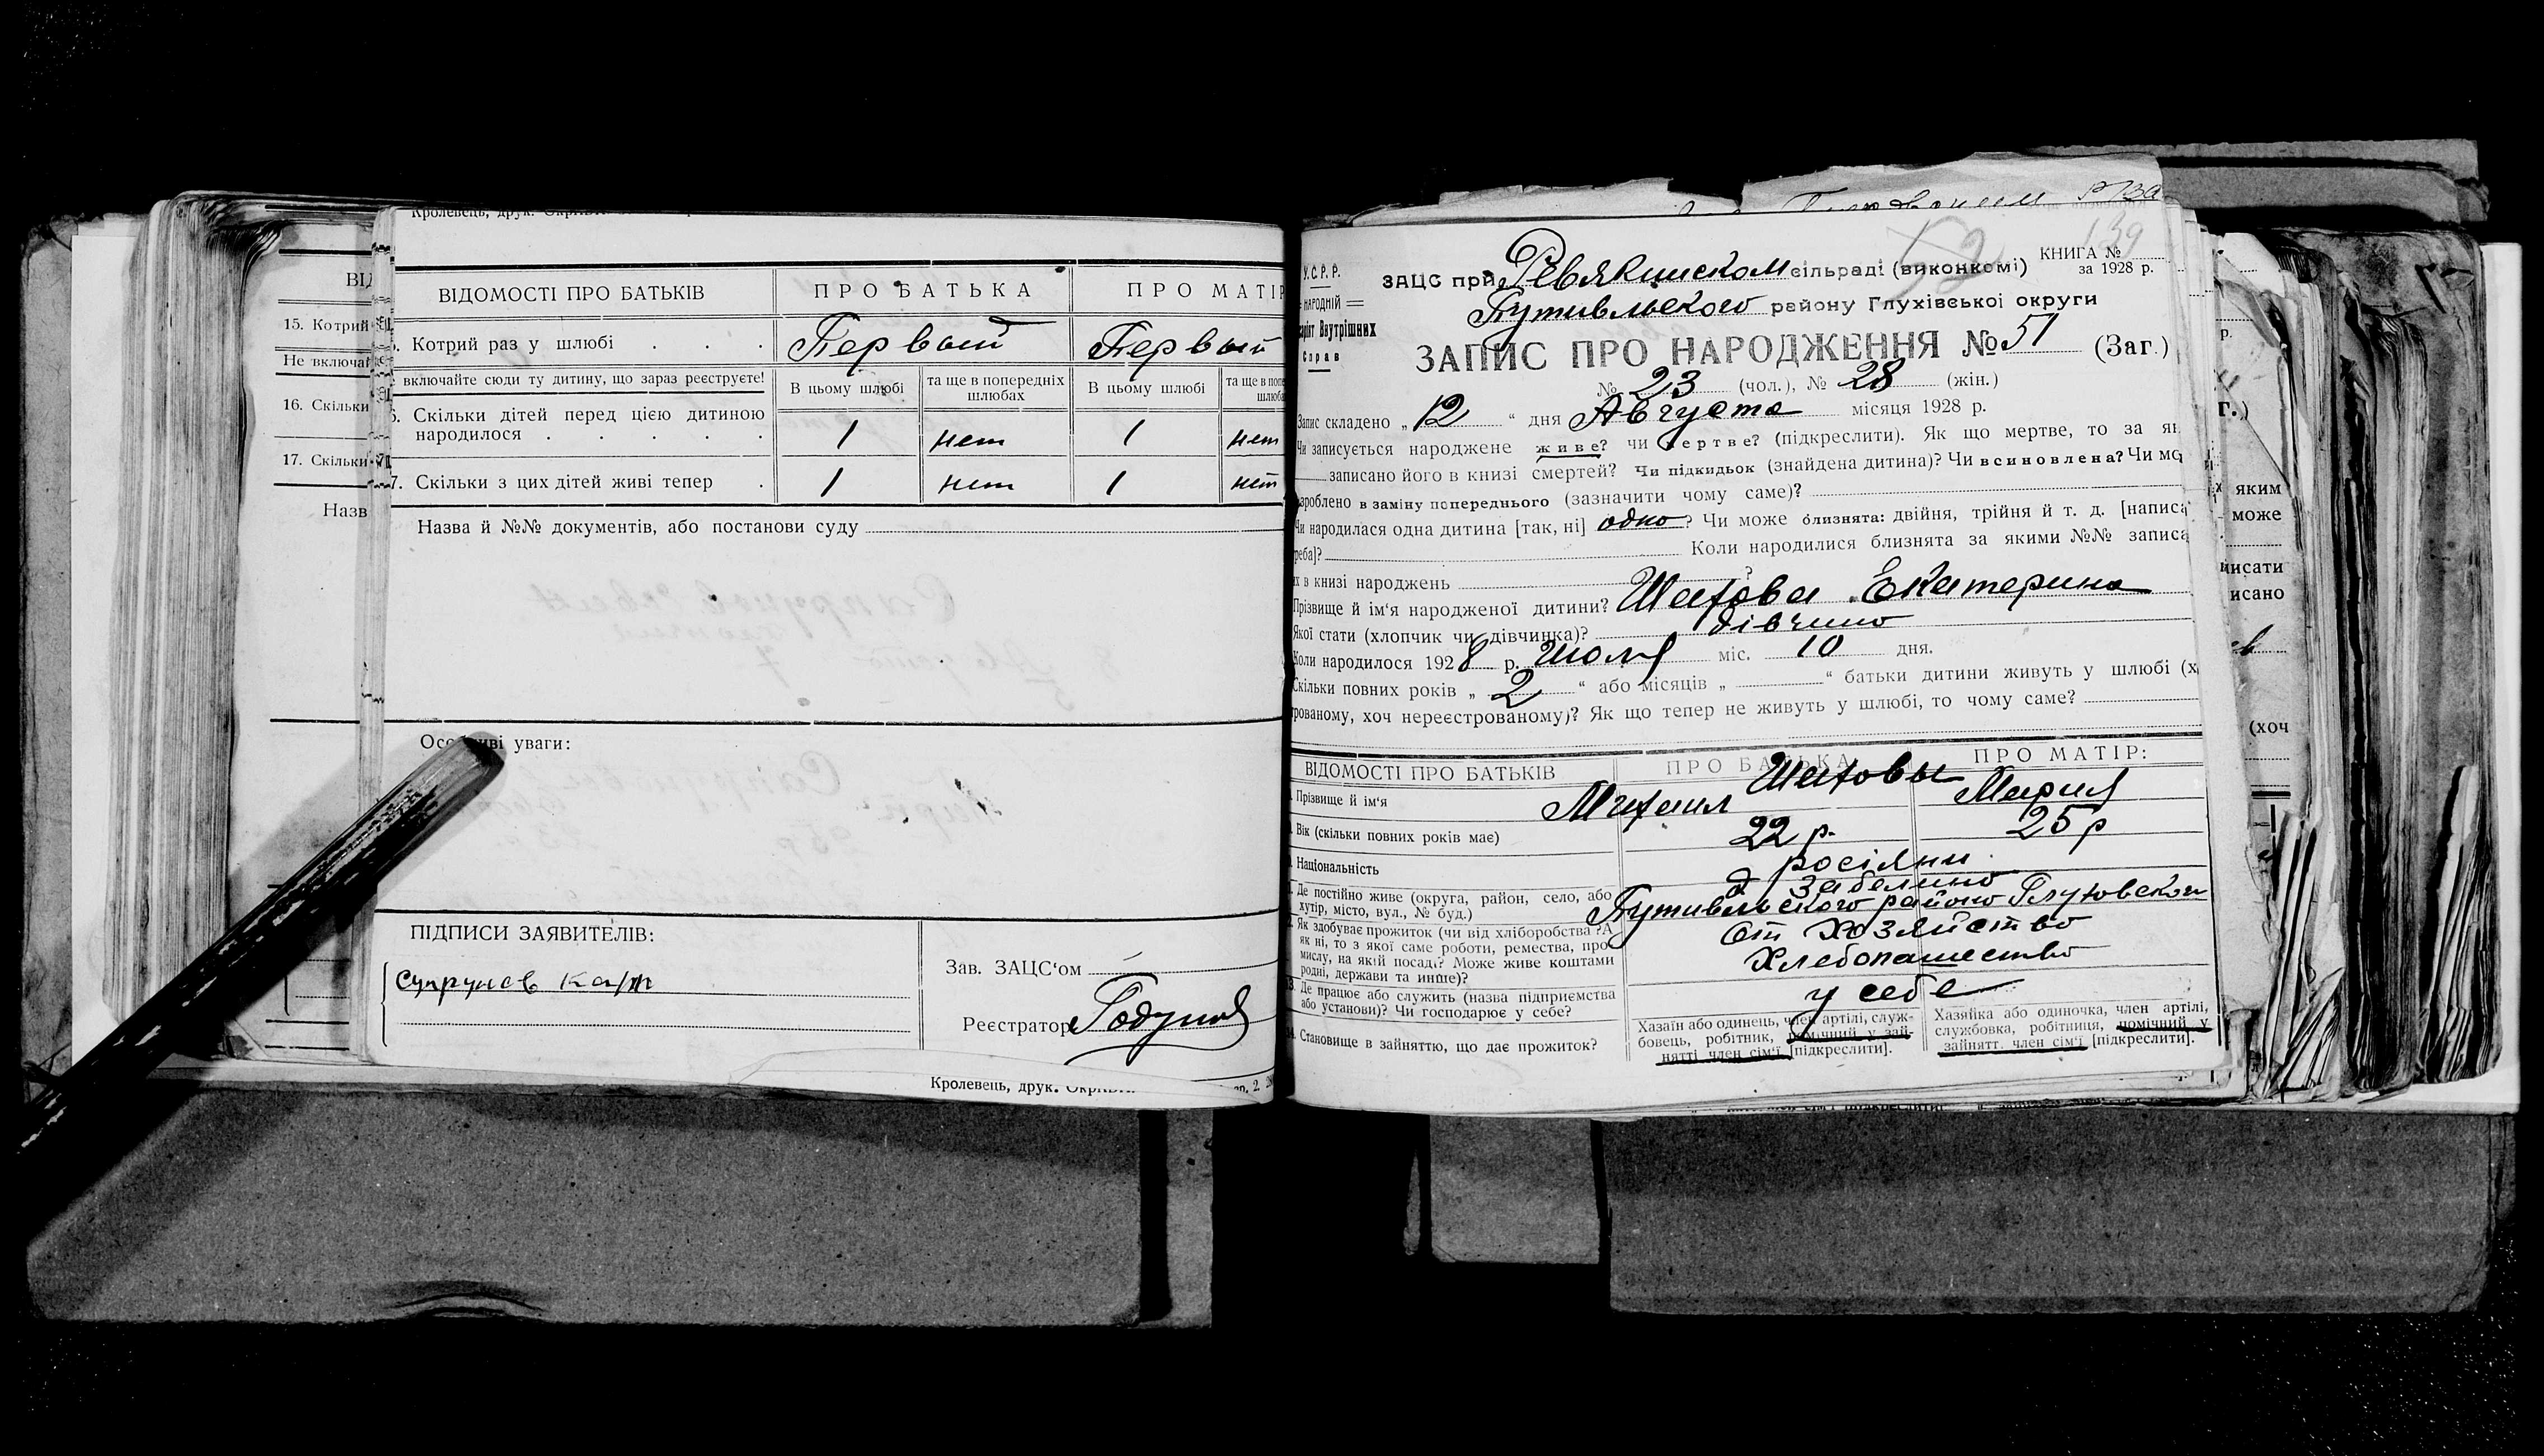 Кролевець, друк.
ВІДОМОСТІ ПРО БАТЬКІВ
ПРО БАТЬКА
ПРО МАТІР
15. Котрий
Котрий раз у шлюбі . . .
Первый
Первый
Не включай
включайте сюди ту дитину, що зараз реєструєте!
В цьому шлюбі
та ще в попередніх шлюбах
В цьому шлюбі
та ще в попе
шлюба
16. Скільки
6. Скільки дітей перед цією дитиною
народилося . . . . .
1
нет
1
нет
17. Скільки
7. Скільки з цих дітей живі тепер .
1
нет
1
нет
Назв
Назва й №№ документів, або постанови суду
Особливі уваги:
ПІДПИСИ ЗАЯВИТЕЛІВ:
Зав. ЗАЦС‘ом
Реєстратор Годунов
Кролевець, друк.
У.С.Р.Р.
НАРОДНІЙ
Внутрішних
Справ
ЗАЦС при Ревякинском сільраді (виконкомі)
КНИГА № 139
за 1928 р.
Путивльского району Глухівської округи
ЗАПИС ПРО НАРОДЖЕННЯ № 51 (Заг.)
№ 23 (чол.), № 28 (жін.)
Запис складено „ 12 “ дня Августа місяця 1928 р.
Чи записується народжене живе? чи мертве? (підкреслити). Як що мертве, то за як
записано його в книзі смертей? Чи підкидьок (знайдена дитина)? Чи всиновлена? Чи мо
зроблено в заміну попереднього (зазначити чому саме)?
Чи народилася одна дитина [так, ні] одно? Чи може близнята: двійня, трійня й т. д. [написа
треба]? Коли народилися близнята за якими №№ записа
їх в книзі народжень ?
Прізвище й ім‘я народженої дитини? Шатова Екатерина
Якої стати (хлопчик чи дівчинка)? дівчина
Коли народилося 1928 р. Июля міс. 10 дня.
Скільки повних років „ 2 “ або місяців „ “ батьки дитини живуть у шлюбі (х
трованому, хоч нереєстрованому)? Як що тепер не живуть у шлюбі, то чому саме?
ВІДОМОСТІ ПРО БАТЬКІВ
ПРО БАТЬКА
ПРО МАТІР:
Прізвище й ім‘я
Шатовы
Михаил
Мария
Вік (скільки повних років має)
22 р.
25 р
Національність
росіяни
Де постійно живе (округа, район, село, або
хутір, місто, вул., № буд.)
д Забелино
Путивльского районо Глуховского
Як здобуває прожиток (чи від хліборобства? А
як ні, то з якої саме роботи, ремества, про-
мислу, на якій посаді? Може живе коштами
родні, держави та инше)?
От Хозяйство
Хлебопашество
Де працює або служить (назва підприємства
або установи)? Чи господарює у себе?
у себе
Становище в зайняттю, що дає прожиток?
Хазаїн або одинець, член артілі, служ-
бовець, робітник, помічний у зай-
нятті член сім‘ї [підкреслити].
Хазяйка або одиночка, член артілі,
службовка, робітниця, помічний у
зайнятт. член сім‘ї [підкреслити].
г.)
яким
може
писати
исано
(хоч